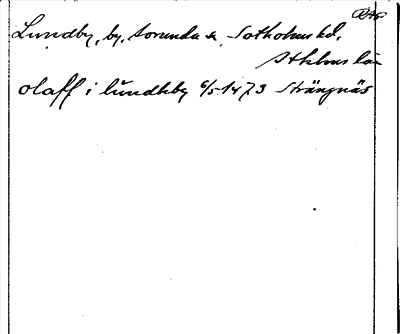 Lundby, by, Sorunda sn, Sotholms hd,
Sthlms län
olaff i lundhby 6/5 1473 Strängnäs